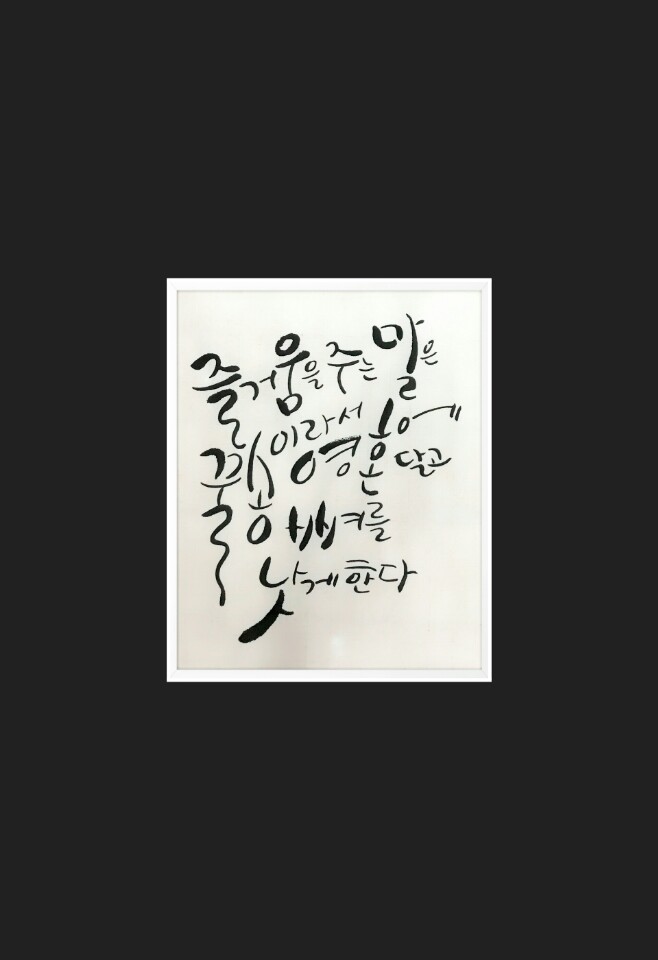 즐거움을 주는 말은
꿀송이라서 영혼에 달고
뼈를
낫게한다